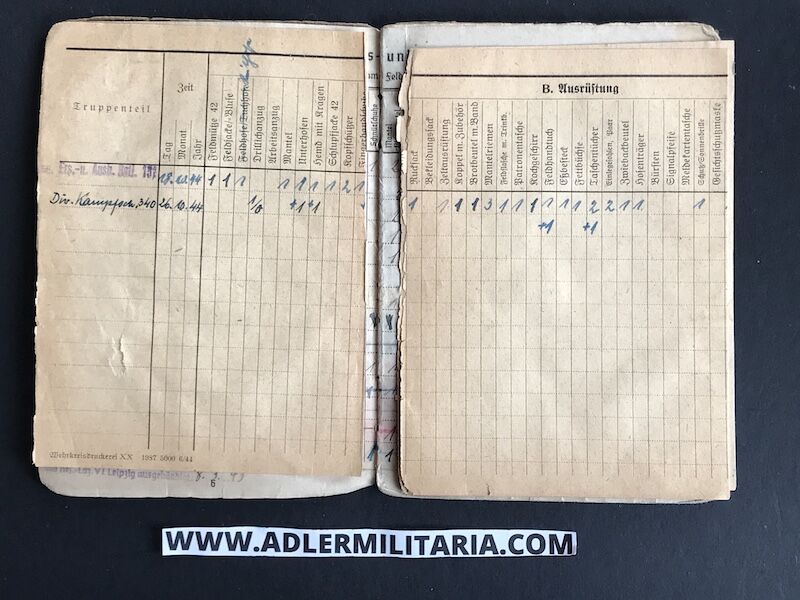 Truppenteil
Zeit
Tag
Monat
Jahr
Feldmütze 42
Feldjacke/-Bluse
Drillichanzug
Arbeitsanzug
Mantel
Unterhosen
Hemd mit Kragen
Schlupfjacke 42
Kopfschützer
Fingerhandschuhe
Ers.-u. Ausb. Batl.
44 1 1 1 1 1 1 1 2 1
Div. Kampfsch. 340 26. 10. 44 1/0 +1 +1
Wehrkreisdruckerei XX 1987 5000 6/44
Leipzig
6
Schnürschuhe
Mantel
B. Ausrüstung
Rucksack
Bekleidungssack
Zeltausrüstung
Koppel m. Zubehör
Brotbeutel m. Band
Mantelriemen
Feldflasche m. Trinkb.
Patronentasche
Kochgeschirr
Feldhandtuch
Eßbesteck
Fettbüchse
Taschentücher
Einlegesohlen, Paar
Zwiebackbeutel
Hosenträger
Bürsten
Signalpfeife
Meldekartentasche
Schutz/Sonnenbrille
Gesichtsschutzmaske
1 1 1 1 3 1 1 1 1 1 1 2 2 1 1 1
+1 +1
WWW.ADLERMILITARIA.COM